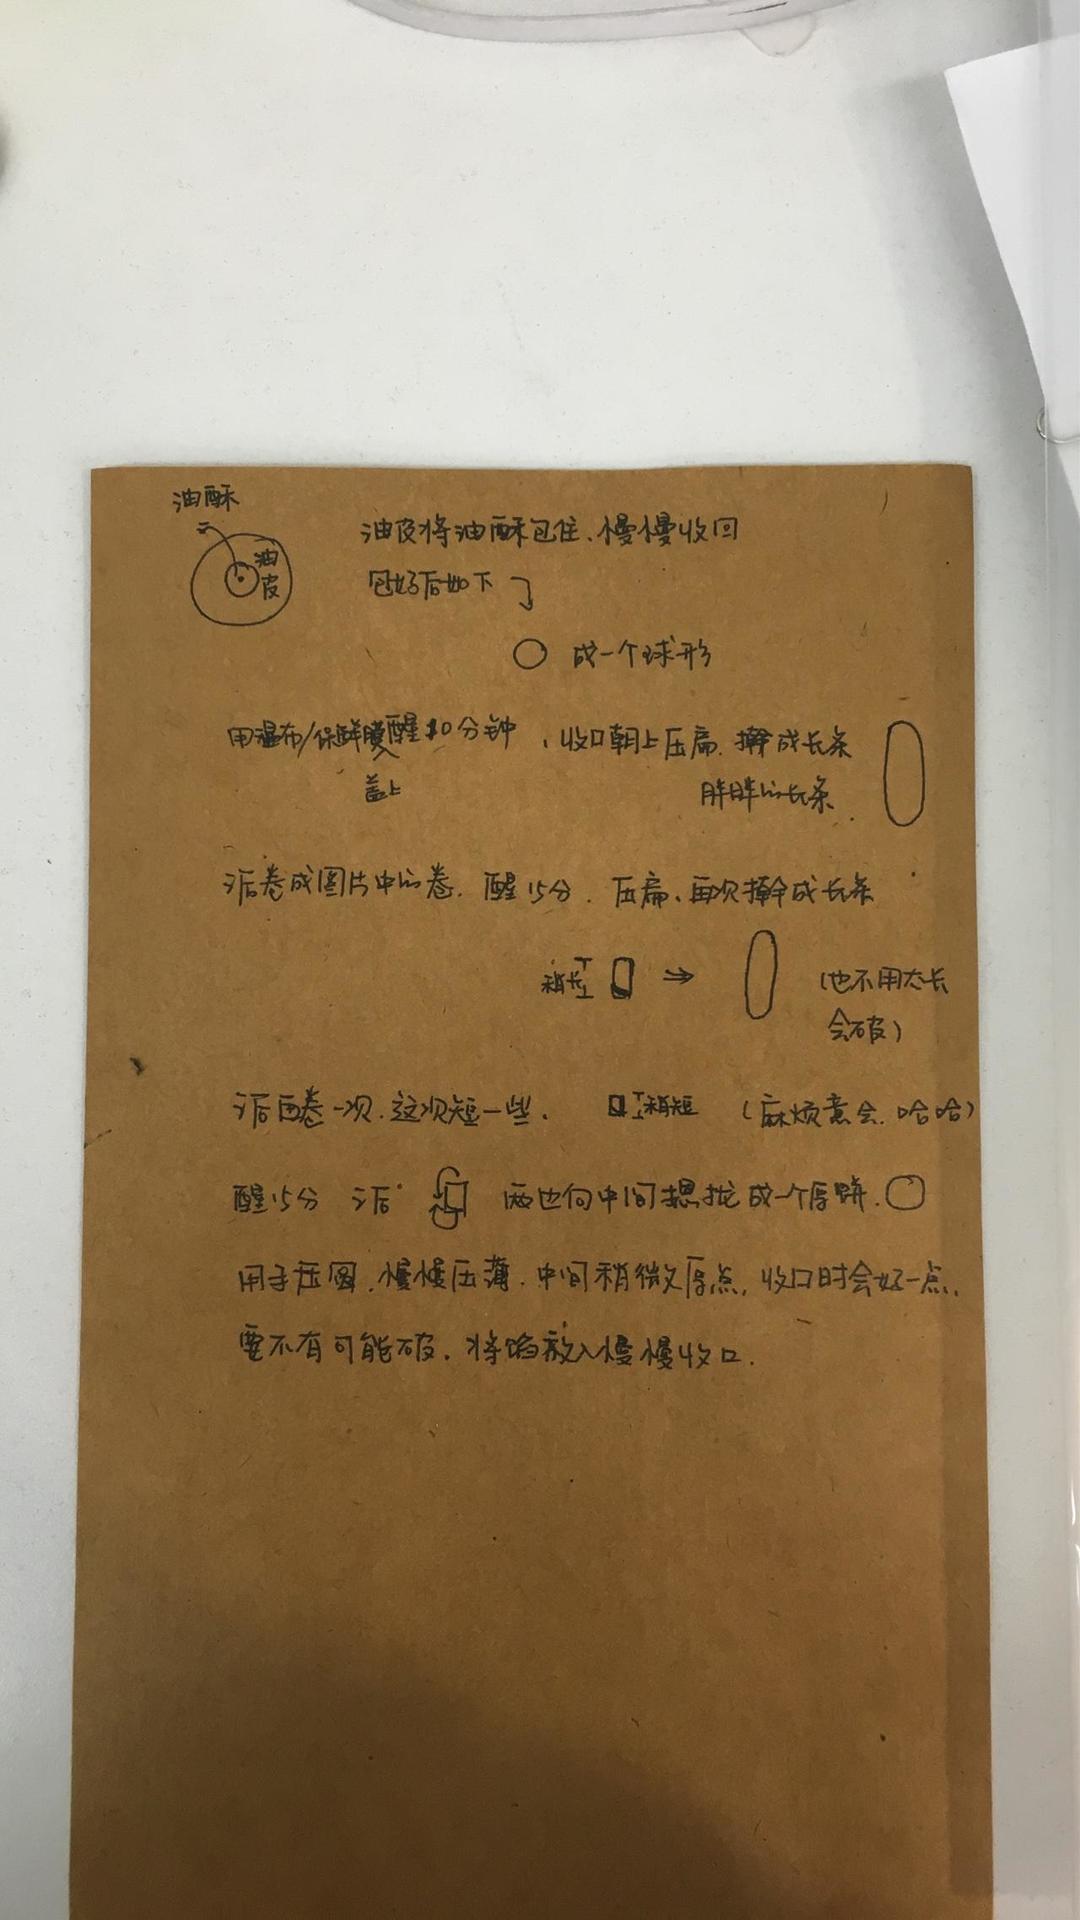 油酥
油皮
油皮将油酥包住、慢慢收回
包好后如下
成一个球形
用湿布/保鲜膜醒10分钟、收口朝上压扁、擀成长条
盖上
胖胖的长条.
后卷成图片中的卷.醒15分.压扁、再次擀成长条
稍长
(也不用太长
会破)
后再卷一次.这次短一些.
稍短
(麻烦意会.哈哈)
醒15分
后
两边向中间想拢成一个厚饼.
用手压圆.慢慢压薄.中间稍微厚点,收口时会好一点,
要不有可能破.将馅放入慢慢收口.